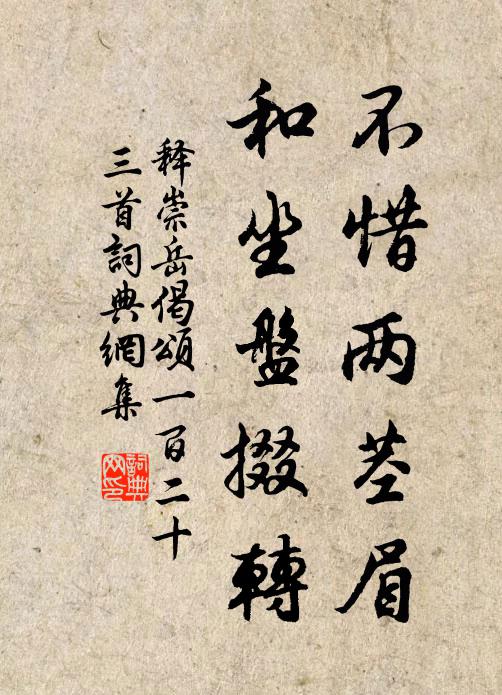 不惜两茎眉
和坐盤掇轉
释崇岳偈頌一百二十
三首詞典網集
詞典网印